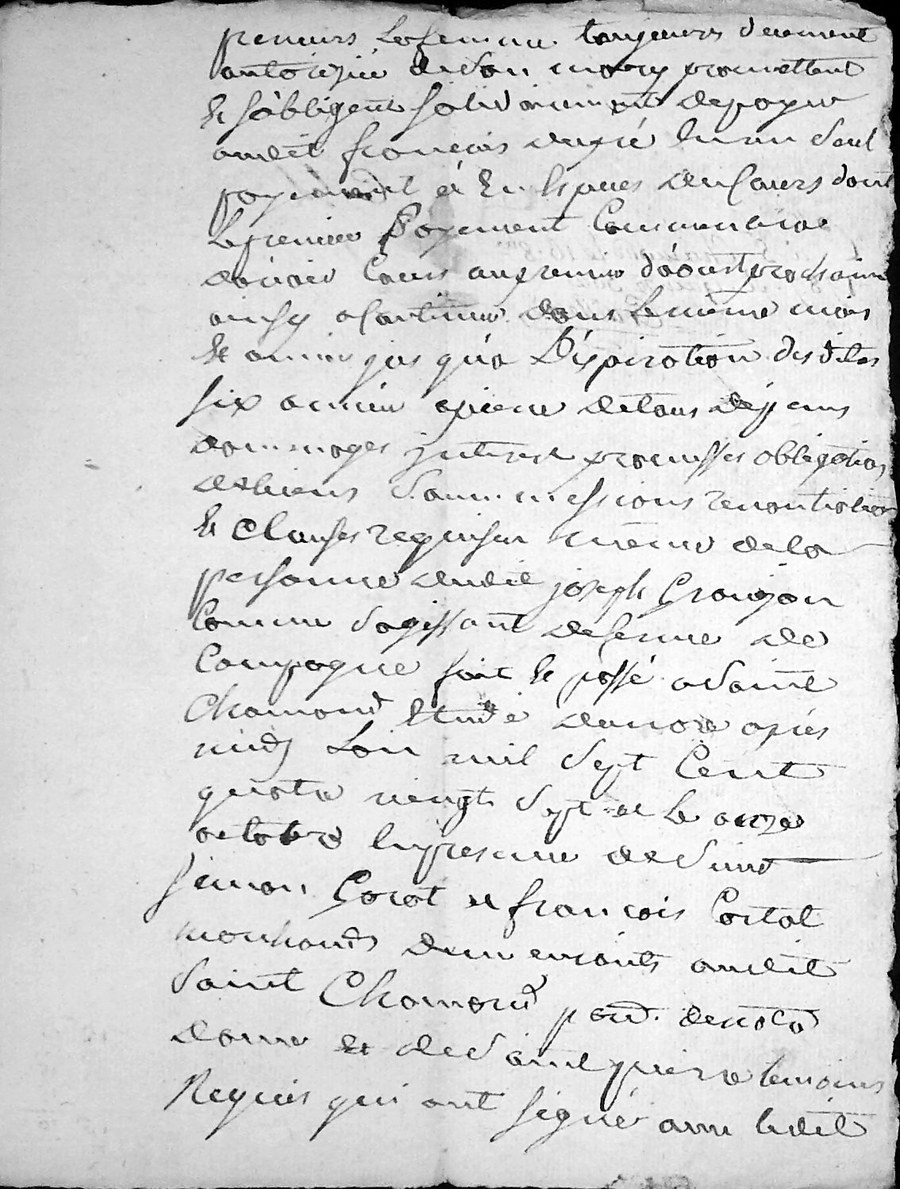 preneurs la femme toujours deuement
autorizée de son mary promettent
et s'obligent solidairement de payer
audit françois dugié en un seul
payement et en especes du cours dont
le premier payement commencera
d'avoir cours au premier d'aoust prochain
ainsy a continuer dans le meme mois
et année jus qu'a l'éxpiration des dites
six années a peine de tous dépens
dommages interest promesses obligation
de biens soummissions renontiation
et clauses requises meme de la
personne dudit joseph Granjon
comme s'agissant de ferme de
campagne fait et passé a Saint
Chamond Etude du note apres
midy L'an mil sept cent
quatre vingt sept et le onze
octobre en presence de Sieurs
simon Corot et françois Cortal
marchands demeurants audit
Saint Chamond par. de notre
dame et de Saint pierre temoins
Requis qui ont signé avec ledit